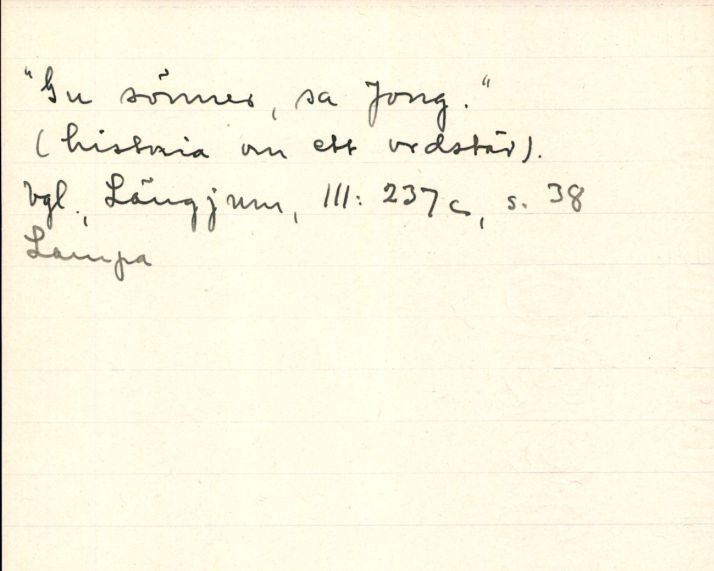 "Gu sönner, sa Jong."
(historia om ett ordstäv).
Vgl., Längjum, III: 237c, s. 38
Lampa